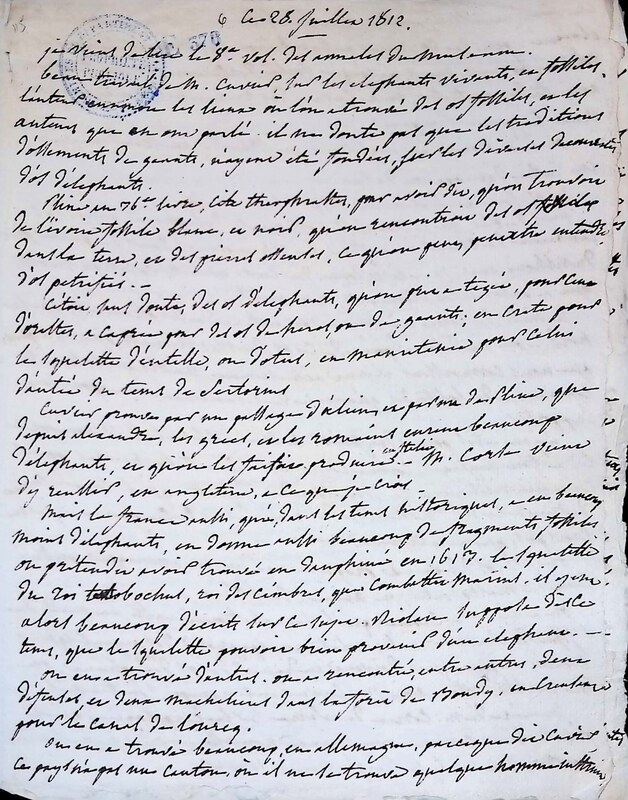 6 Ce 28. Juillet 1812.
370
je viens de lire le 8e. vol. des annales du museum.
beau travail de M. Cuvier sur les elephants vivants, et fossiles.
l'auteur les lieux où l'on a trouvé des os fossiles, et les
auteurs qui en ont parlé. il ne doute pas que les traditions
d'ossements de geants, n'ayent été fondées, sur les diverses decouvertes
d'os d'élephants.
Pline en 36e. livre, cite theophraste, pour avoir dit, qu'on trouvoit
de l'ivoire fossile blanc, et noir, qu'on rencontroit des os
dans la terre, et des pierres osseuses, ce qu'on peut, peutetre entendre
d'os petrifiés. —
C'étoit sans doute, des os d'élephants, qu'on prit a tegée, pour ceux
d'orestes, a caprée pour des os de heros, ou de geants; en Crete pour
le squelette d'entelle, ou d'otus, en mauritanie pour celui
d'antée du tems de Sertorius
Cuvier prouve par un passage d'elien, et par un de Pline, que
depuis alexandre, les grecs, et les romains eurent beaucoup
d'élephants, et qu'on les faisoit produire en italie. — M. Corse vient
d'y reussir, en angleterre, a ce que je crois
Mais la france aussi, qui, dans les tems historiques, a eu beaucoup
moins d'elephants, en donne aussi beaucoup de fragments fossiles
on prétendit avoir trouvé en dauphiné en 1613. le squelette
du roi teutobochus, roi des cimbres, que combattit Marius. il y eut
alors beaucoup d'écrits sur ce sujet. Riolan supposa dès ce
tems, que le squelette pouvoit bien provenir d'un elephant. —
on en a trouvé d'autres. on a rencontré, entre autres, deux
défenses, et deux machelieres dans la forêt de Bondy, en creusant
pour le canal de l'ourcq.
On en a trouvé beaucoup, en allemagne, parceque dit Cuvier
ce pays n'a pas un canton, où il ne se trouve quelque homme instruit